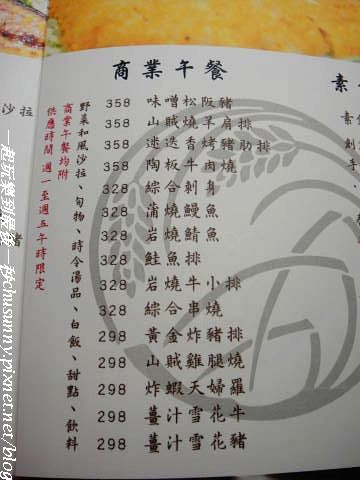 商業午餐
358 味噌松阪豬
358 山賊燒羊肩排
358 迷迭香烤豬肋排
358 陶板牛肉燒
328 綜合刺身
328 蒲燒鰻魚
328 岩燒鯖魚
328 鮭魚排
328 岩燒牛小排
328 綜合串燒
298 黃金炸豬排
298 山賊雞腿燒
298 炸蝦天婦羅
298 薑汁雪花牛
298 薑汁雪花豬
野菜和風沙拉、旬物、時令湯品、白飯、甜點、飲料
商業午餐均附
供應時間 週一至週五午時限定
沙拉
豬
素
一起玩樂到最後 一在chusunny.pixnet.net/blog